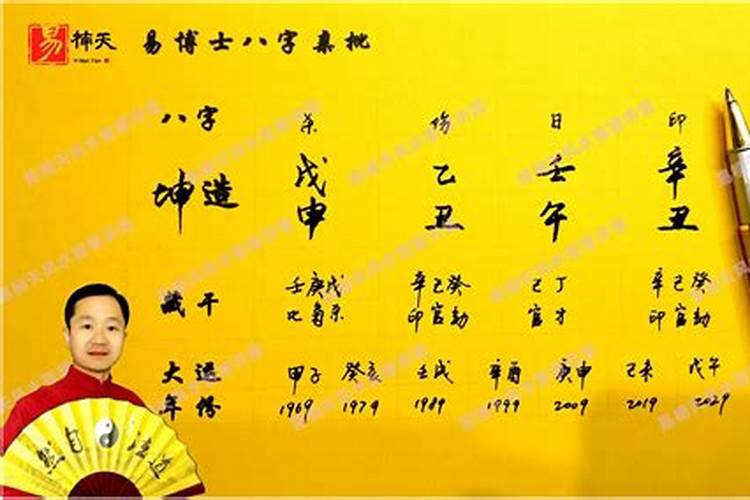 易
楠天
Yi Nan Tian
易博士八字集批
八字 杀 伤 日 印
坤造 戊 乙 壬 辛
申 丑 午 丑
藏干 壬庚戊 辛己癸 己丁 辛己癸
比枭杀 印官劫 官才 印官劫
大运 甲子 癸亥 壬戌 辛酉 庚申 己未 戊午
年份 1969 1979 1989 1999 2009 2019 2029
然自法道